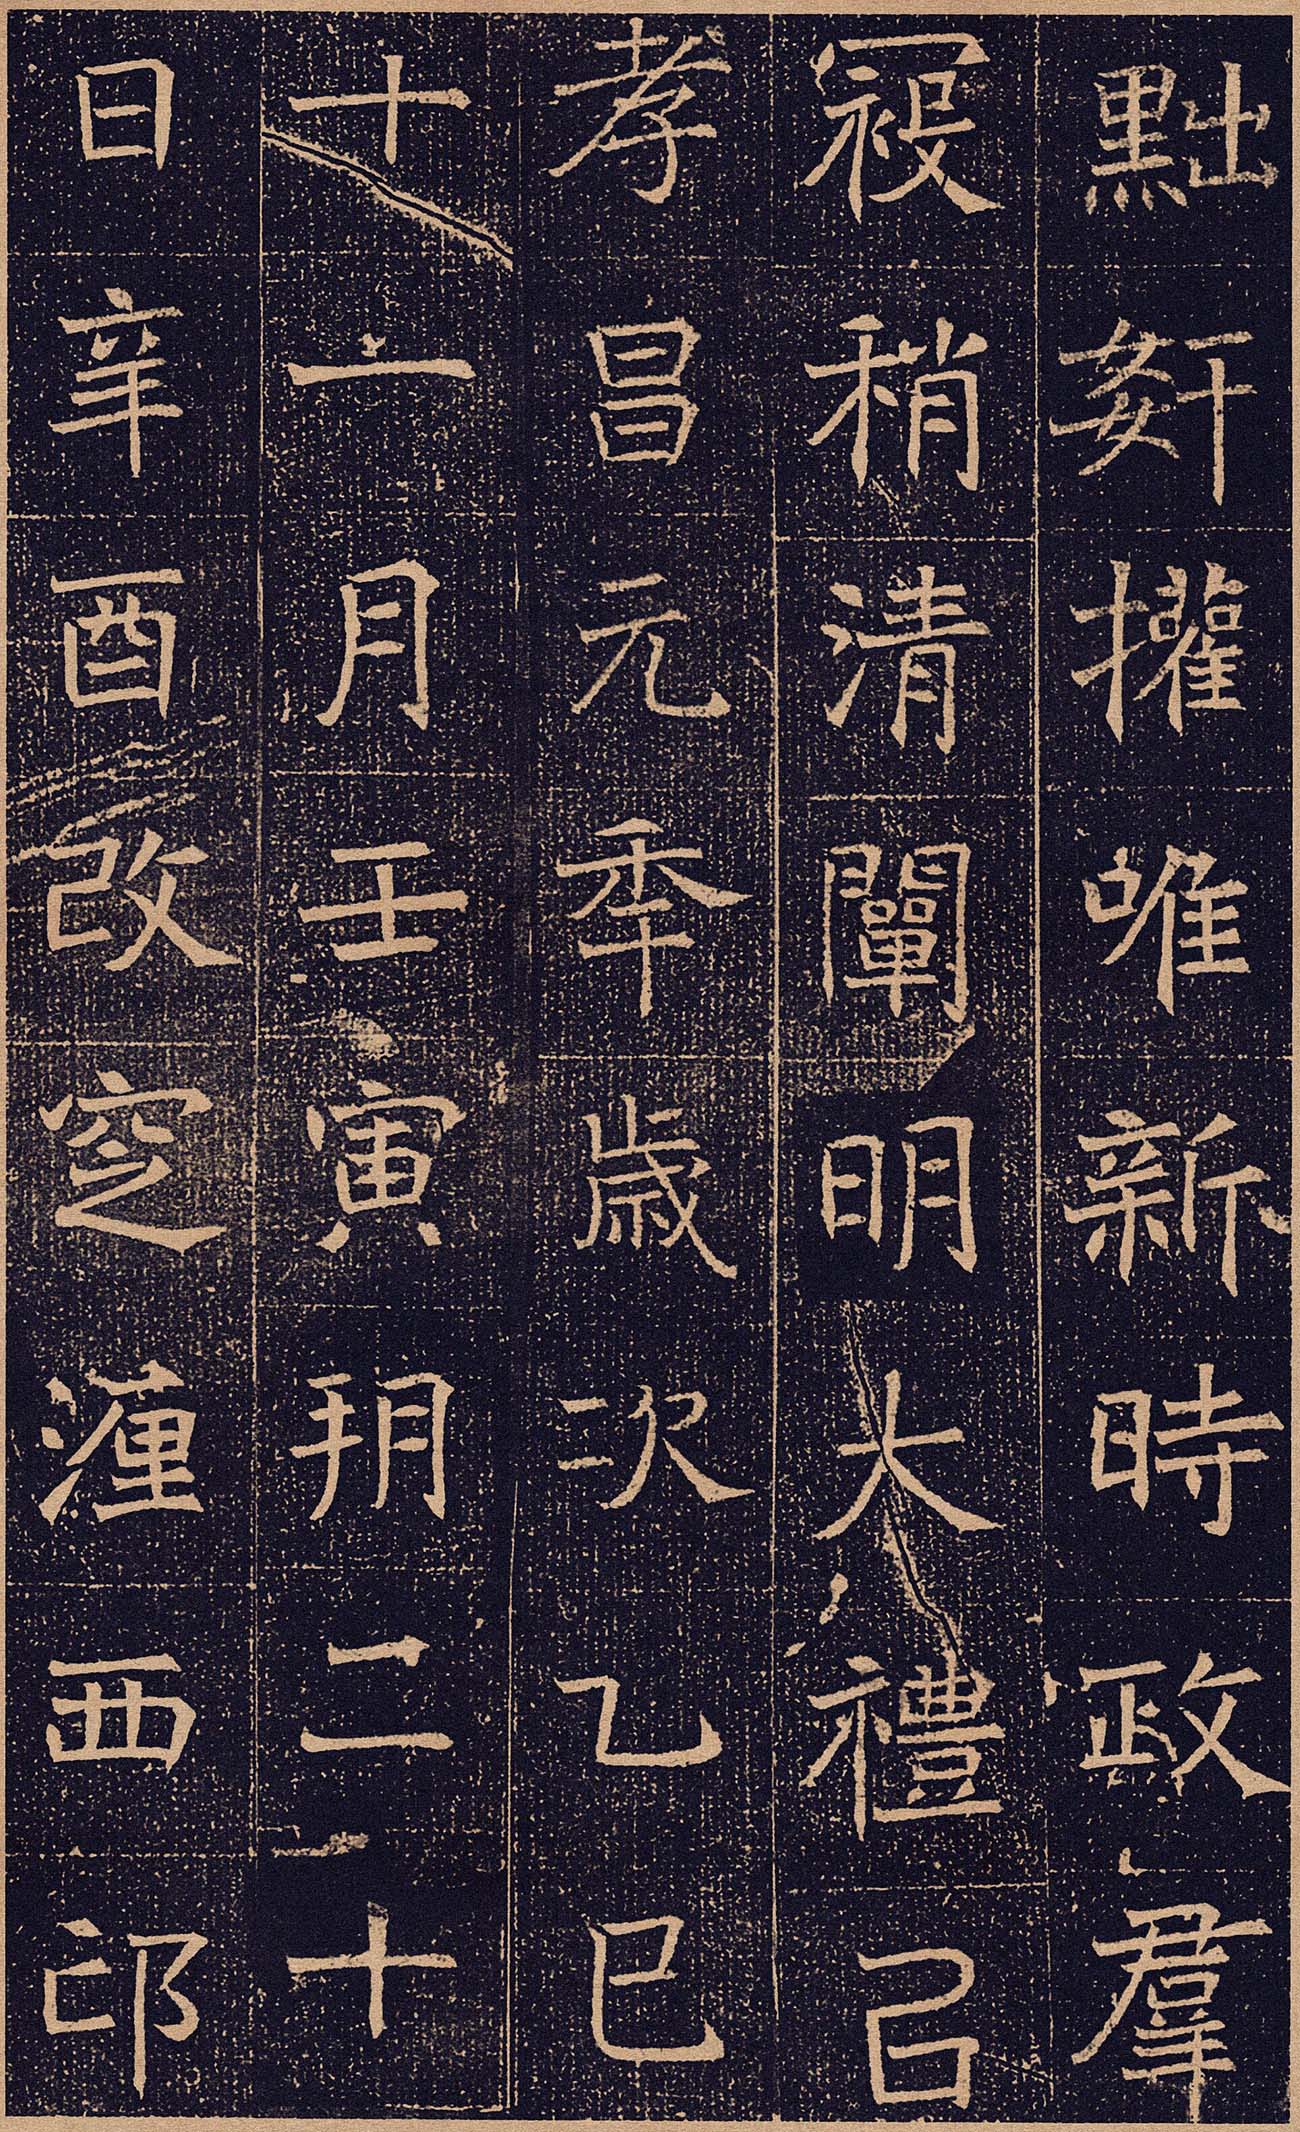 黜奸擢唯新時政羣
祲稍清闡明大禮已
孝昌元年歲次乙巳
十一月壬寅朔二十
日辛酉改窆瀍西邙